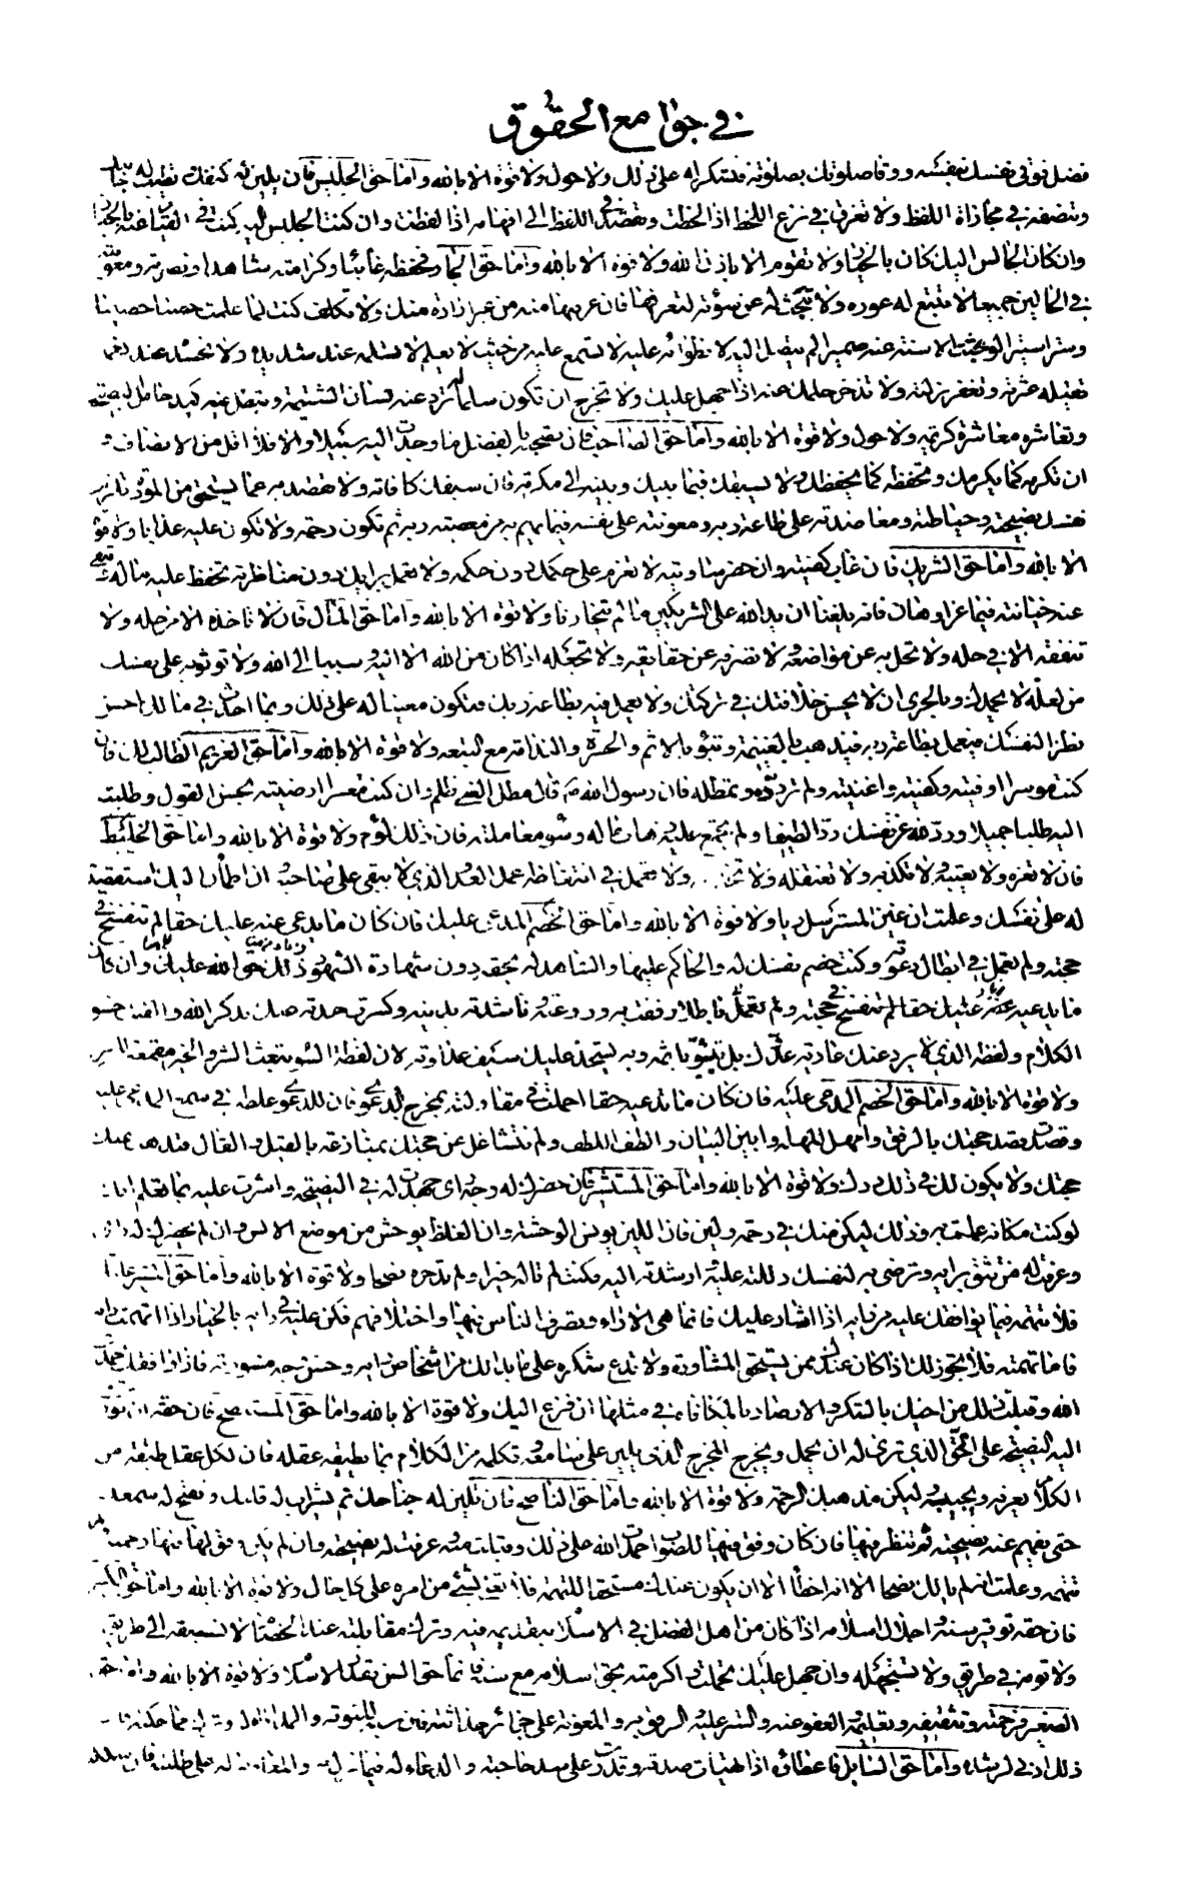 في جوامع الحقوق
فضل فوقى نفسك بنفسه ووقا صلوتك بصلوته فتشكر له على ذلك ولا حول ولا قوة الا بالله واما حق الجليس فان يلين له كنفك
وتنصفه في مجاراة اللفظ ولا تغرق في نزع اللحظ اذا لحظت وتقصد في اللفظ الى افهامه اذا لفظت وان كنت الجليس اليه كنت في القيام عنه بالخيار
وان كان الجالس اليك كان بالخيار ولا تقوم الا باذنه ولا قوة الا بالله واما حق الجار فحفظه غائبا وكرامته شاهدا ونصرته ومعونته
في الحالين جميعا لا تتبع له عورة ولا تبحث له عن سوئة لتعرفها فان عرفتها منه من غير ارادة منك ولا تكلف كنت لما علمت حصنا حصينا
وسترا ستيرا لو بحثت الاسنة عنه ضمير الم يتصل اليه لا تستمع عليه من حيث لا يعلم لا تسلمه عند شديدة ولا تحسده عند نعمة
تقيله عثرته وتغفر زلته ولا تدخر حلمك عنه اذا جهل عليك ولا تخرج ان تكون سلما له ترد عنه لسان الشتيمة وتبطل فيه كيد حامل النصيحة
وتعاشره معاشرة كريمة ولا حول ولا قوة الا بالله واما حق الصاحب فان تصحبه بالفضل ما وجدت اليه سبيلا والا فلا اقل من الانصاف و
ان تكرمه كما يكرمك وتحفظه كما يحفظك ولا يسبقك فيما بينك وبينه الى مكرمة فان سبقك كافاته ولا تقصد به عما يستحق من المودة تلزم
نفسك نصيحته وحياطته ومعاضدته على طاعة ربه ومعونته على نفسه فيما يهم به من معصية ربه ثم تكون رحمة ولا تكون عليه عذابا ولا قوة
الا بالله واما حق الشريك فان غاب كفيته وان حضر ساويته لا تعزم على حكمك دون حكمه ولا تعمل برايك دون مناظرته تحفظ عليه ماله وتنفى
عنه خيانته فيما عز او هان فانه بلغنا ان يد الله على الشريكين ما لم يتخاونا ولا قوة الا بالله واما حق المال فان لا تاخذه الا من حله ولا
تنفقه الا في حله ولا تحرفه عن مواضعه ولا تصرفه عن حقايقه ولا تجعله اذا كان من الله الا اليه وسببا الى الله ولا توثر به على نفسك
من لعله لا يحمدك وبالحرى ان لا يحسن خلافتك في تركتك ولا يعمل فيه بطاعة ربك فتكون معينا له على ذلك وبما احدث في مالك احسن
نظرا لنفسك فيعمل بطاعة ربه فيذهب بالغنيمة وتبوء بالاثم والحسرة والندامة مع التبعة ولا قوة الا بالله واما حق الغريم الطالب لك فان
كنت موسرا اوفيته وكفيته واغنيته ولم تردده وتمطله فان رسول الله ص قال مطل الغني ظلم وان كنت معسرا ارضيته بحسن القول وطلبت
اليه طلبا جميلا ورددته عن نفسك ردا لطيفا ولم تجمع عليه ذهاب ماله وسوء معاملته فان ذلك لؤم ولا قوة الا بالله واما حق الخليط
فان لا تغره ولا تغشه ولا تكذبه ولا تغفله ولا ولا تعمل في انتقاضه عمل العدو الذي لا يبقى على صاحبه وان اطمأن اليك استقصيت
له على نفسك وعلمت ان غبن المسترسل ربا ولا قوة الا بالله واما حق الخصم المدعى عليك فان كان ما يدعى عنه عليك حقا لم تنفسخ في
حجته ولم تعمل في ابطال دعوته وكنت خصم نفسك له والحاكم عليها والشاهد له بحقه دون شهادة الشهود فان ذلك حق الله عليك وان كان
ما يدعيه عليك حقا لم تنفسخ في حجته ولم تعمل
الكلام ولفظه الذي لا يرد عنك عادية عدوك بل تبوء باثمه وبه يشحذ عليك سيف عداوته لان لفظة السوء تبعث الشر والخير مقمعة للشر
ولا قوة الا بالله واما حق الخصم المدعى عليه فان كان ما تدعيه حقا اجملت في مقاولته بمخرج الدعوى فان للدعوى غلظة في سمع المدعى عليه
وقصدت قصد حجتك بالرفق وامهل المهلة وابين البيان والطف اللطف ولم تتشاغل عن حجتك بمنازعته بالقيل والقال فتذهب عنك
حجتك ولا يكون لك في ذلك درك ولا قوة الا بالله واما حق المستشير فان حضرك له وجه راى جهدت له في النصيحة واشرت عليه بما تعلم انك
لو كنت مكانه عملت به وذلك ليكن منك في رحمة ولين فان اللين يونس الوحشة وان الغلظ يوحش من موضع الانس وان لم يحضرك له راى
وعرفت له من تثق برايه وترضى به لنفسك دللته عليه وارشدته اليه فكنت لم تاله خيرا ولم تدخره نصحا ولا قوة الا بالله واما حق المشير عليك
فلا تتهمه فيما يوافقك عليه من رايه اذا اشار عليك فانما هى الاراء وتصرف الناس فيها واختلافهم فكن عليه في رايه بالخيار اذا اتهمت رايه
فاما تهمته فلا تجوز لك اذا كان عندك ممن يستحق المشاورة ولا تدع شكره على ما بدا لك من اشخاص رايه وحسن وجه مشورته فاذا وافقك حمدت
الله وقبلت ذلك من اخيك بالشكر والارصاد بالمكافاة في مثلها ان فزع اليك ولا قوة الا بالله واما حق المستنصح فان حقه ان تؤدى
اليه النصيحة على الحق الذي ترى له ان يحمل ويخرج المخرج الذي يلين على مسامعه وتكلمه من الكلام بما يطيقه عقله فان لكل عقل طبقة من
الكلام يعرفه ويجيبه وليكن مذهبك الرحمة ولا قوة الا بالله واما حق الناصح فان تلين له جناحك ثم تشراب له قلبك وتفتح له سمعك
حتى تفهم عنه نصيحته ثم تنظر فيها فان كان وفق فيها للصواب حمدت الله على ذلك وقبلت منه وعرفت له نصيحته وان لم يكن وفق لها فيها رحمته ولم
تتهمه وعلمت انه لم يالك نصحا الا انه اخطأ الا ان يكون عندك مستحقا للتهمة فلا تعبأ بشيء من امره على كل حال ولا قوة الا بالله واما حق الكبير
فان حقه توقير سنه واجلال اسلامه اذا كان من اهل الفضل في الاسلام بتقديمه فيه وترك مقابلته عند الخصام لا تسبقه الى طريق
ولا تؤمه في طريق ولا تستجهله وان جهل عليك تحملت واكرمته بحق اسلامه مع سنه فانما حق السن بقدر الاسلام ولا قوة الا بالله واما حق
الصغير فرحمته وتثقيفه وتعليمه والعفو عنه والستر عليه والرفق به والمعونة له والستر على جرائر حداثته فانه سبب للتوبة والمداراة له وترك مماحكته فان
ذلك ادنى لرشده واما حق السايل فاعطاؤه اذا تهيات صدقة وقدرت على سد حاجته والدعاء له فيما نزل به والمعاونة له على طلبته فان شككت